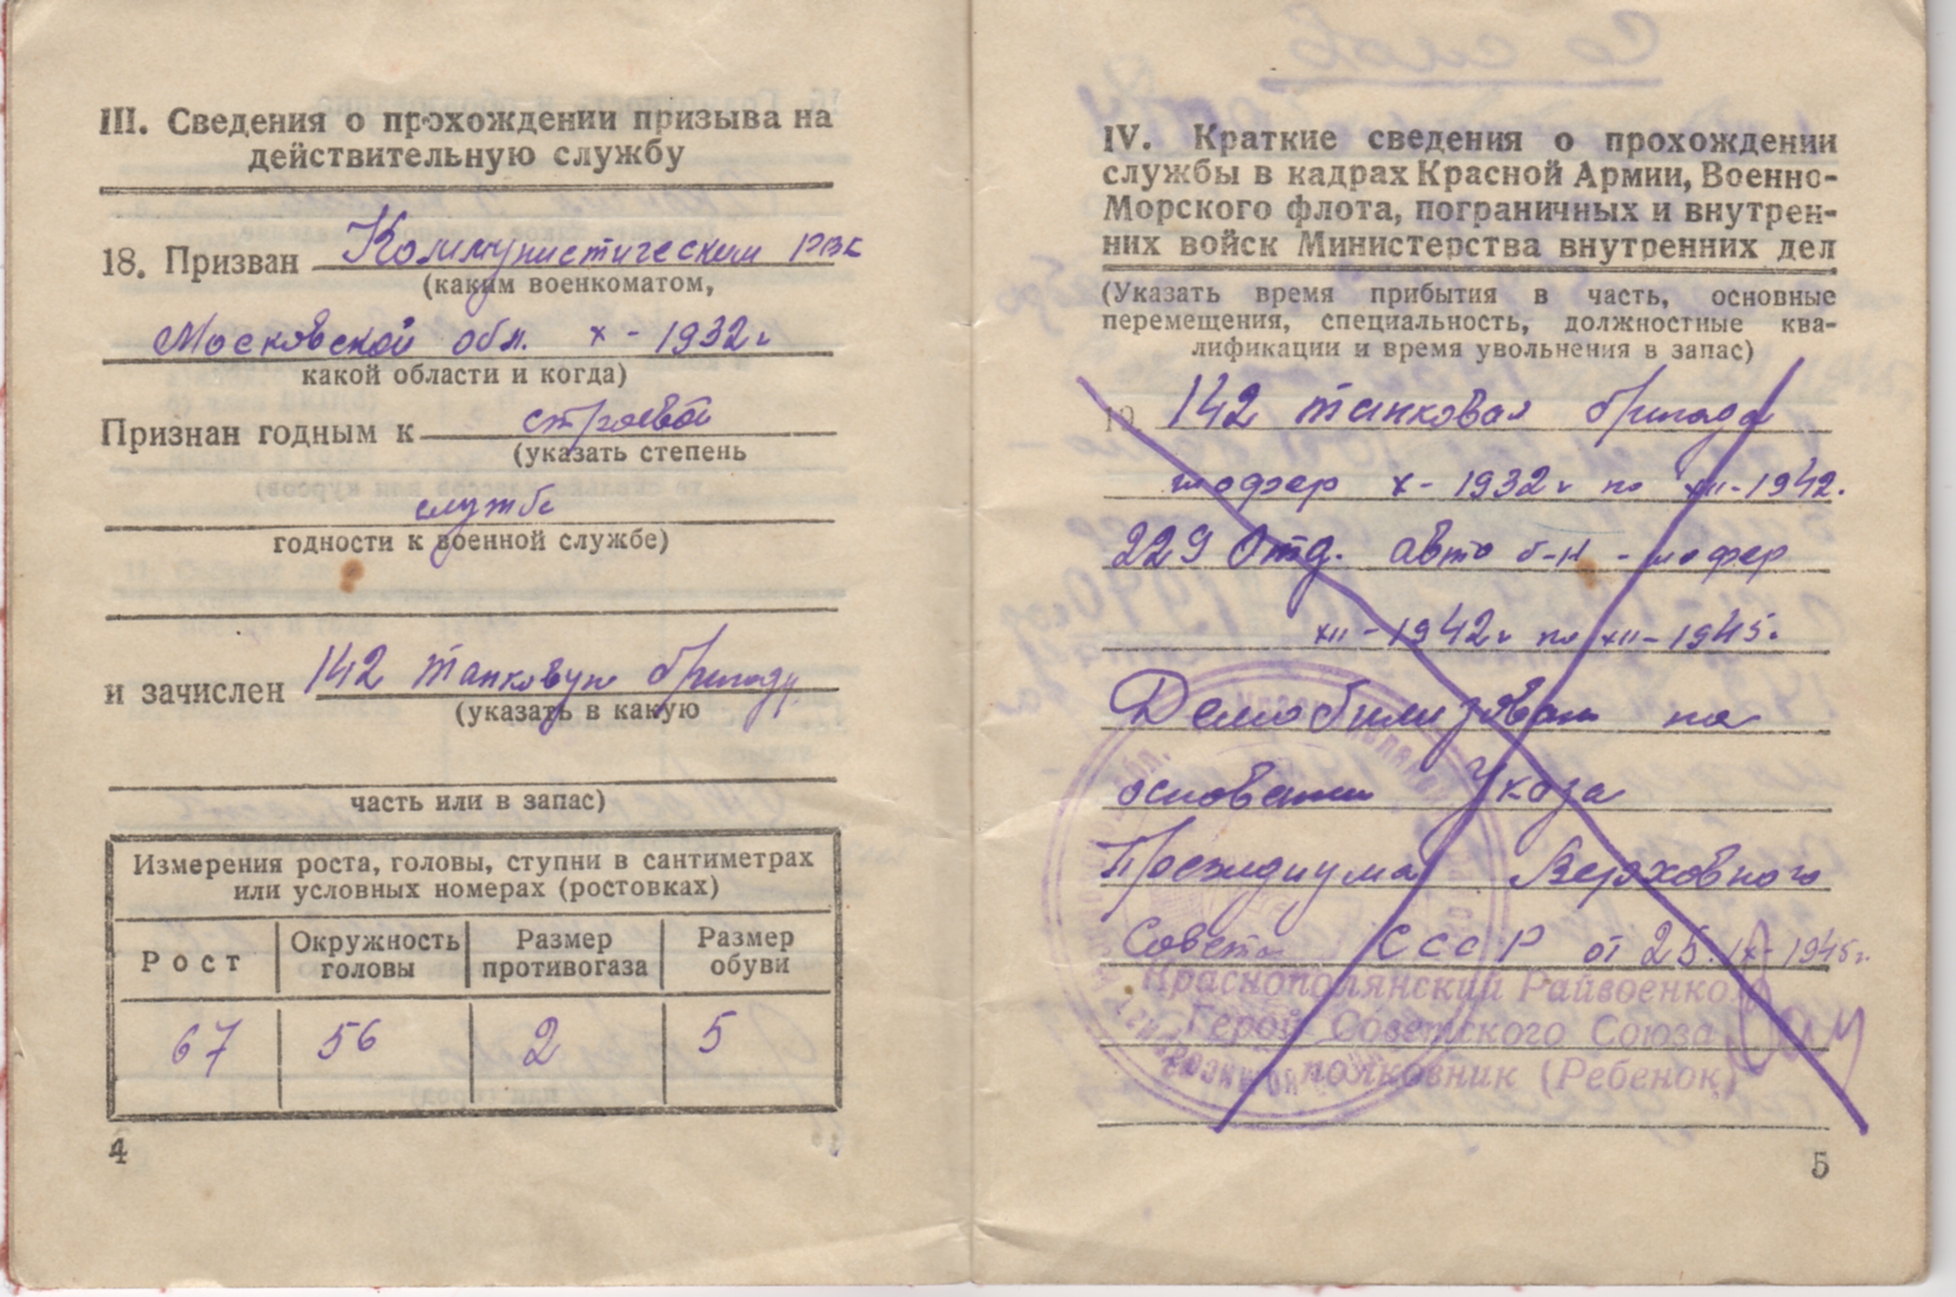 III. Сведения о прохождении призыва на
действительную службу
18. Призван Коммунистическим РВК
(каким военкоматом,
Московской обл. X - 1932 г
какой области и когда)
Признан годным к строевой
(указать степень
службе
годности к военной службе)
и зачислен 142 танковую бригаду
(указать в какую
часть или в запас)
Измерения роста, головы, ступни в сантиметрах
или условных номерах (ростовках)
Рост Окружность головы Размер противогаза Размер обуви
67 56 2 5
4
IV. Краткие сведения о прохождении
службы в кадрах Красной Армии, Военно-
Морского флота, пограничных и внутрен-
них войск Министерства внутренних дел
(Указать время прибытия в часть, основные
перемещения, специальность, должностные ква-
лификации и время увольнения в запас)
19. 142 танковая бригада
шофер X - 1932 г по XII - 1942.
229 Отд. авто б-н - шофер
XII - 1942 г по XII - 1945.
Демобилизован на
основании Указа
Президиума Верховного
Совета СССР от 25.IX - 1945 г.
Краснополянский Райвоенком
Герой Советского Союза
полковник (Ребенок)
5